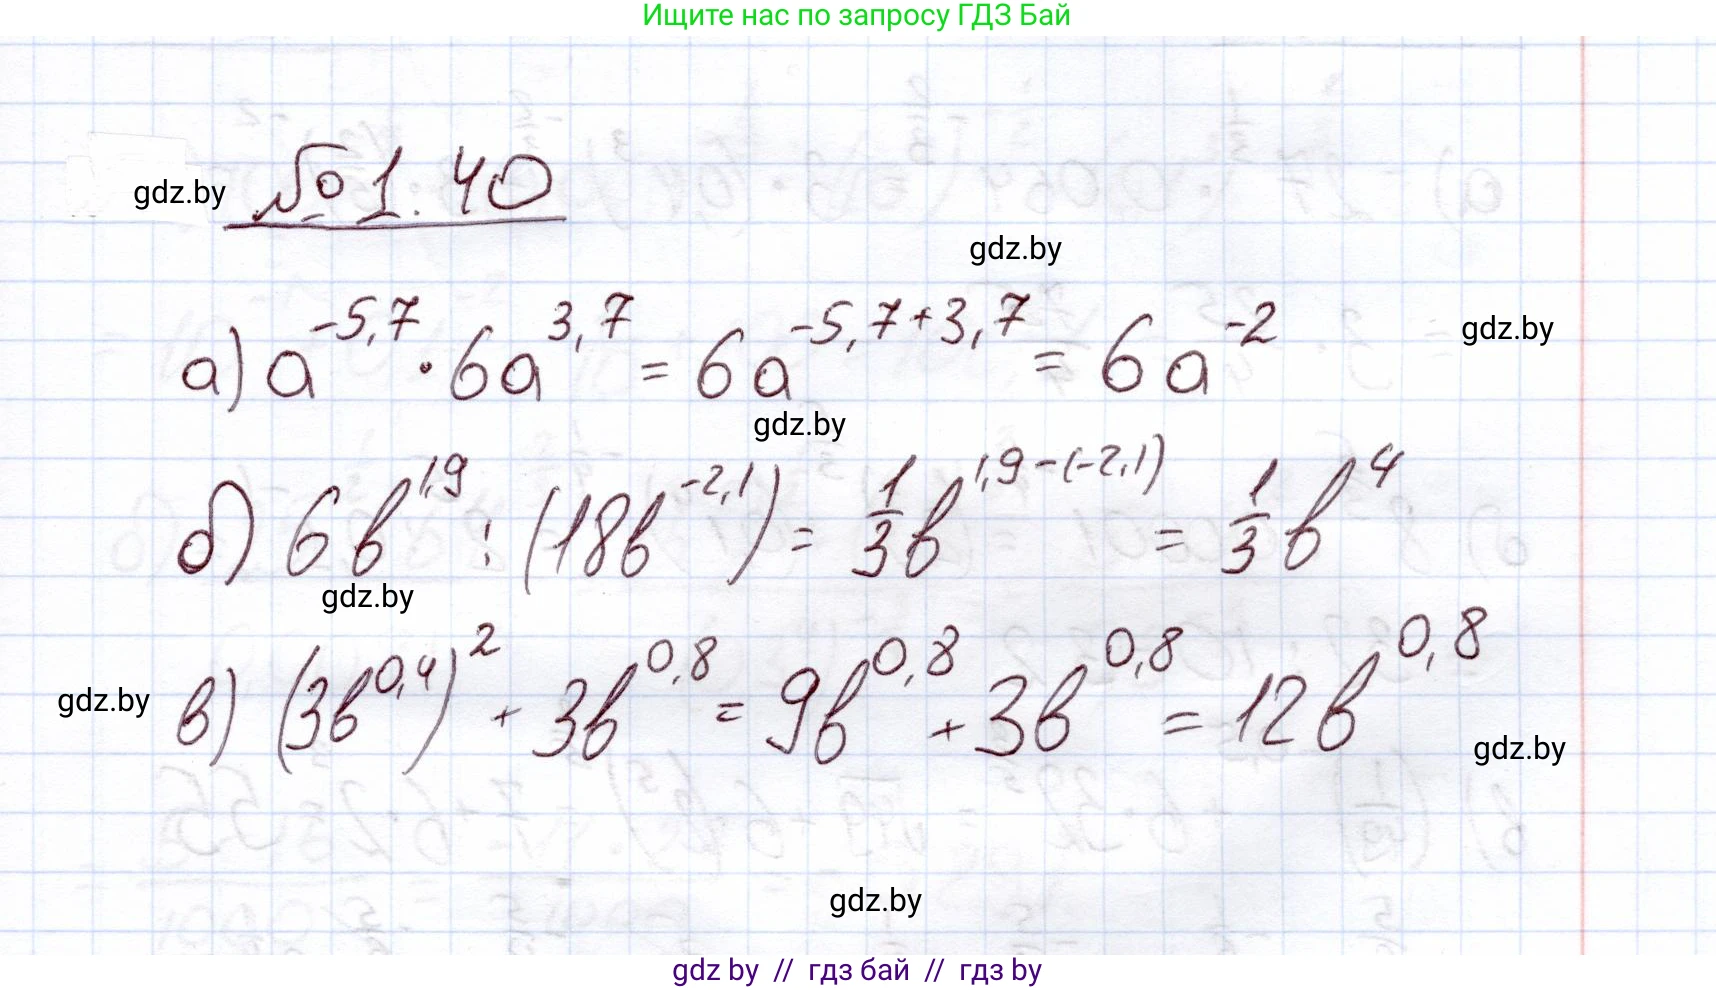 Ищите нас по запросу ГДЗ Бай
gdz.by №1.40
gdz.by
а) a^{-5,7} · 6a^{3,7} = 6a^{-5,7+3,7} = 6a^{-2} gdz.by
gdz.by
б) 6b^{1,9} : (18b^{-2,1}) = \frac{1}{3}b^{1,9-(-2,1)} = \frac{1}{3}b^{4}
gdz.by
gdz.by в) (3b^{0,4})^{2} + 3b^{0,8} = 9b^{0,8} + 3b^{0,8} = 12b^{0,8}
gdz.by
gdz.by
gdz by // гдз бай // гдз by